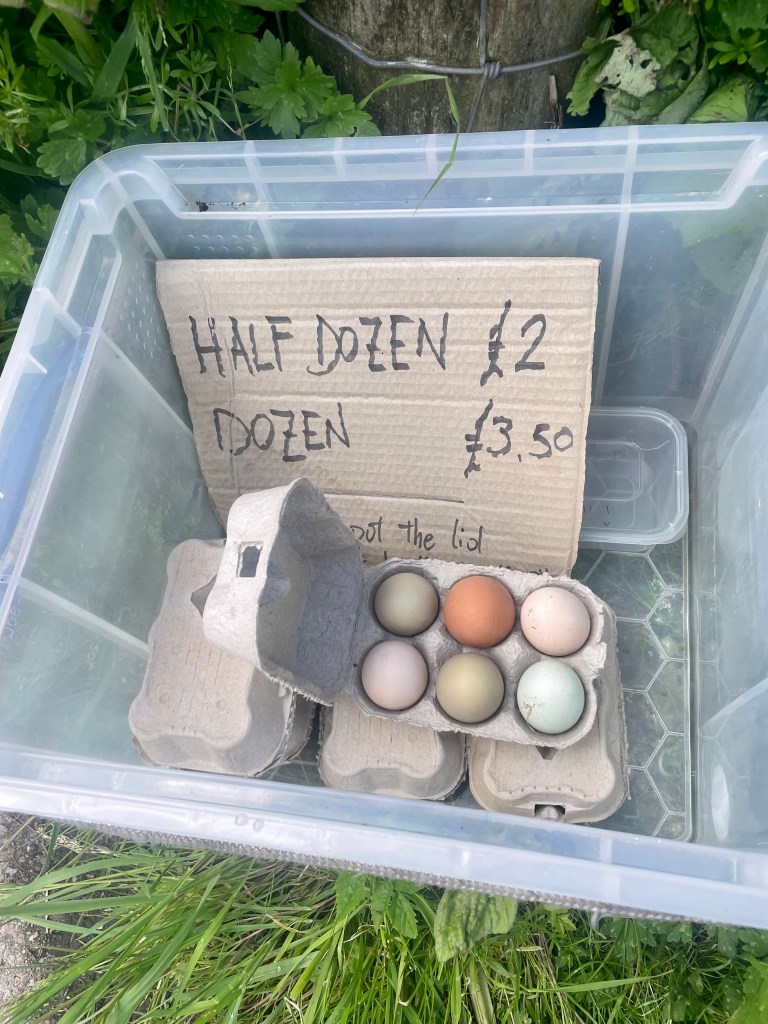 HALF DOZEN £2
DOZEN £3.50
the lid